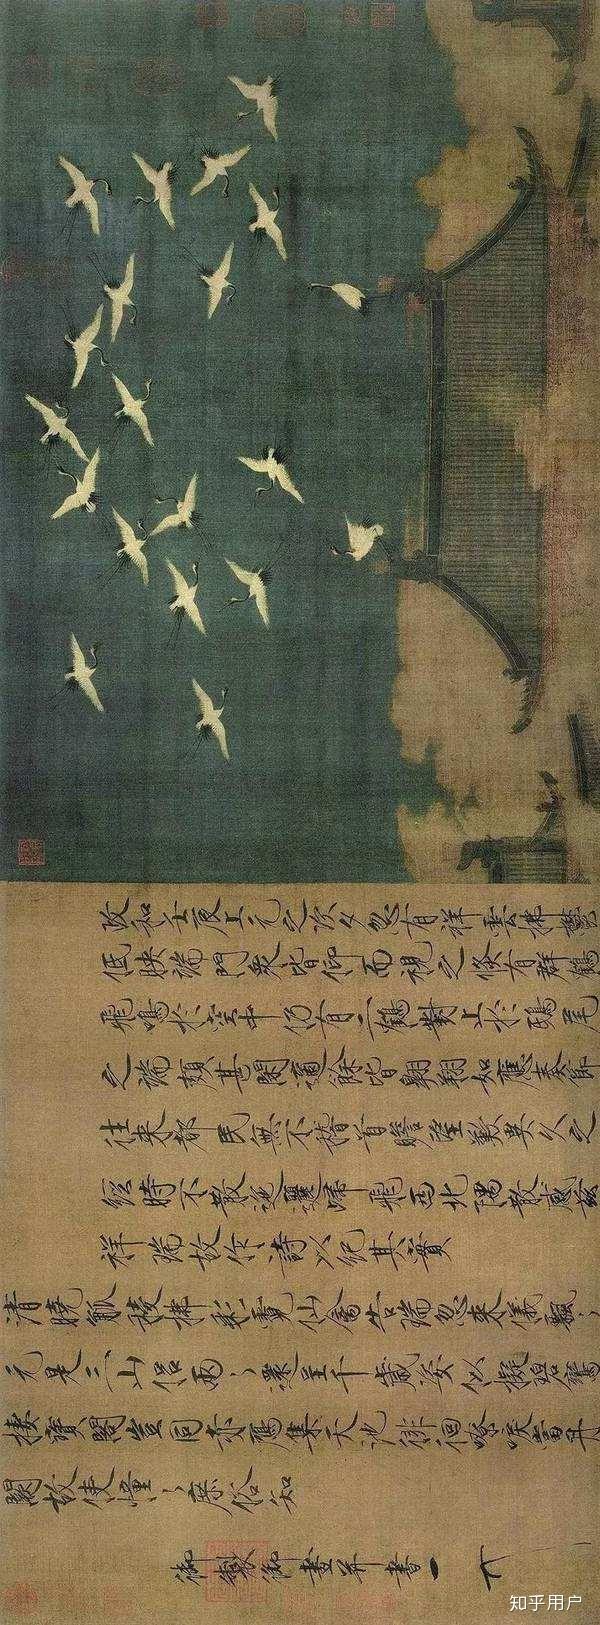 政和壬辰上元之次夕忽有祥雲拂鬱
低映端門衆皆仰而視之倏有群鶴
飛鳴於空中仍有二鶴對止於鴟尾
之端頗甚閑適餘皆翱翔如應奏節
往來都民無不稽首瞻望歎異久之
經時不散迤邐歸飛西北隅散感兹
祥瑞故作詩以紀其實
清曉觚稜拂彩霓仙禽告瑞忽來儀飄〻
元是三山侶兩〻還呈千歲姿似擬碧鸞
棲寶閣豈同赤鴈集天池徘徊嘹唳當丹
闕故使憧〻庶俗知
御製御畫并書
知乎用户